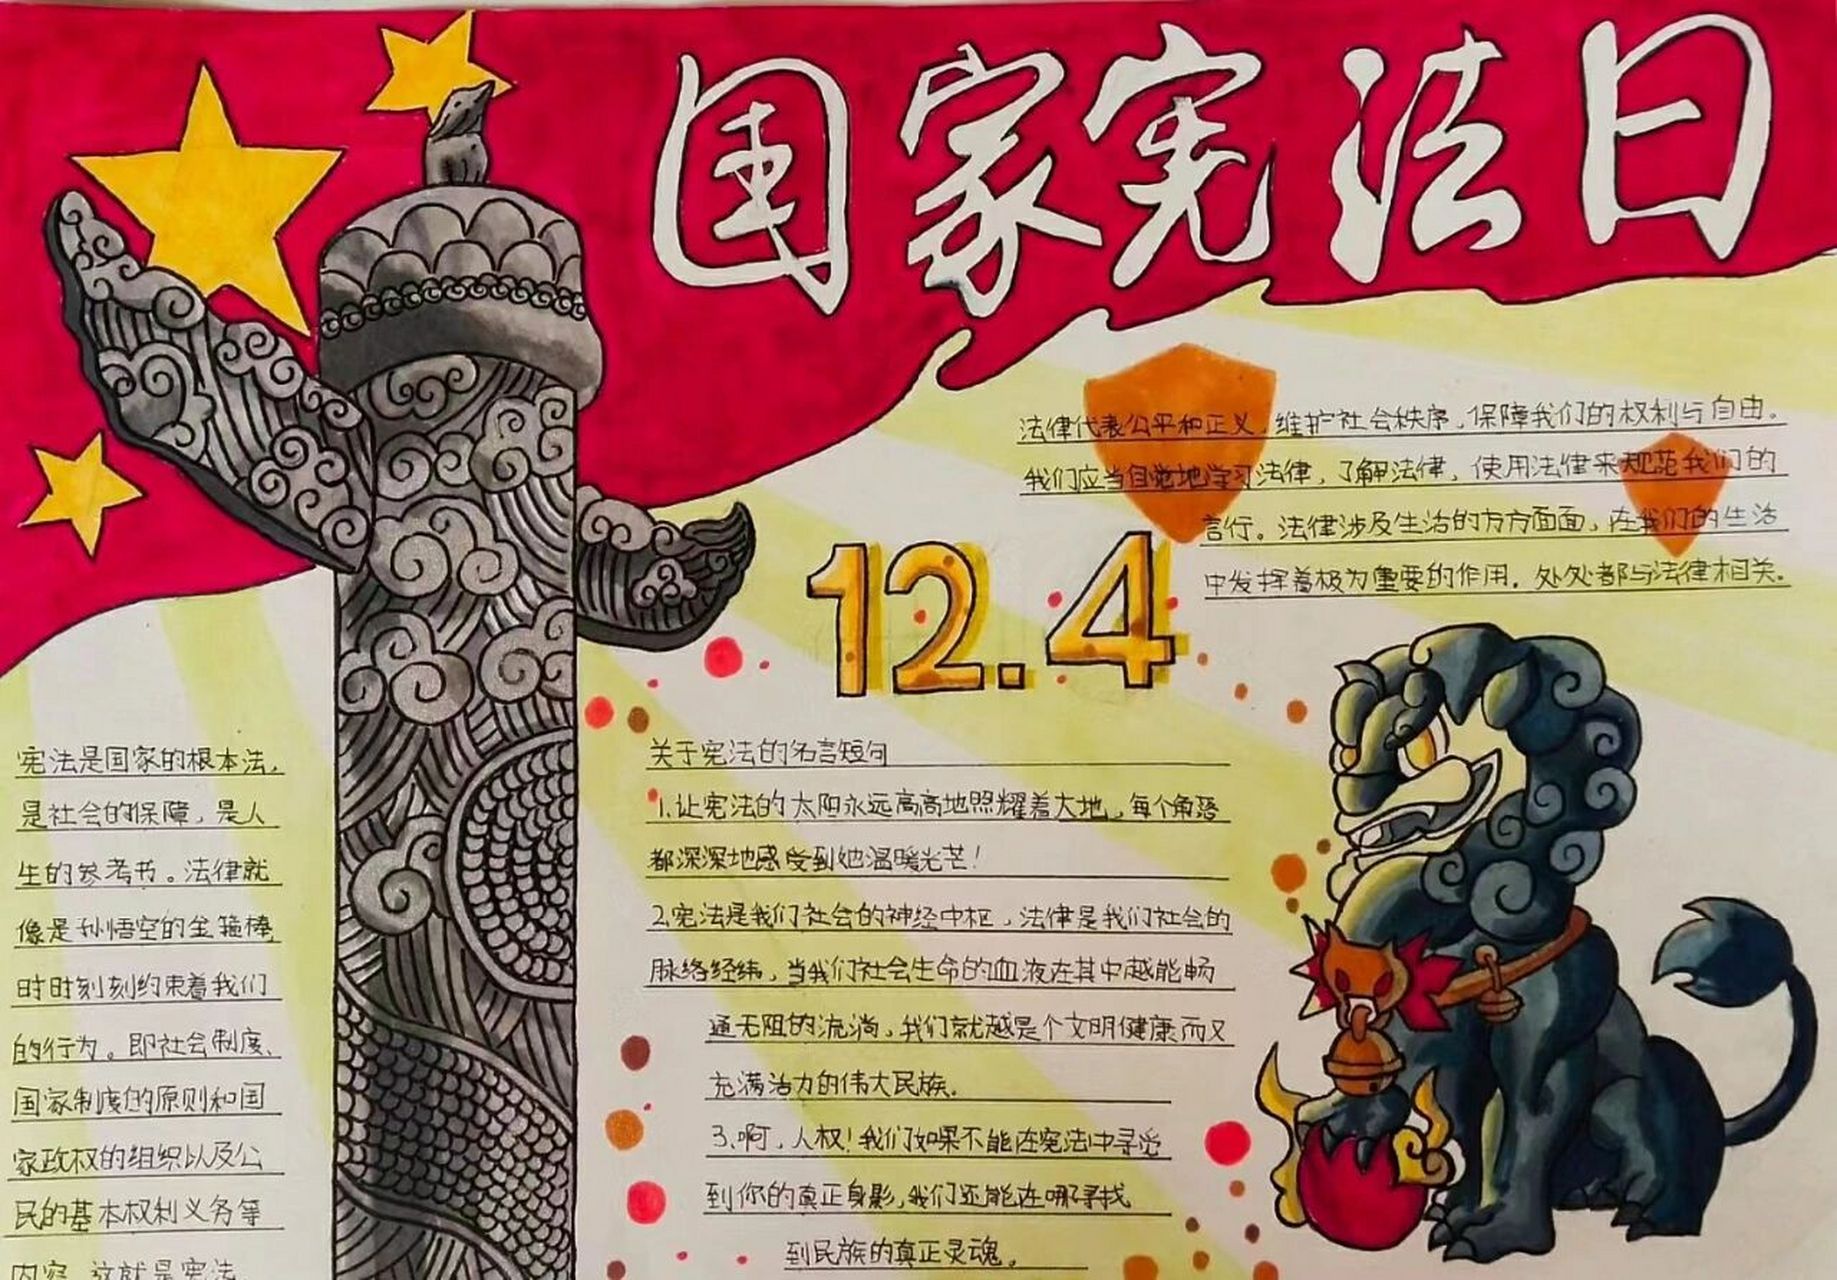 国家宪法日
法律代表公平和正义，维护社会秩序，保障我们的权利与自由。
我们应当自觉地学习法律，了解法律，使用法律来规范我们的
言行。法律涉及生活的方方面面，在我们的生活
中发挥着极为重要的作用，处处都与法律相关。
12.4
宪法是国家的根本法，
是社会的保障，是人
生的参考书。法律就
像是孙悟空的金箍棒，
时时刻刻约束着我们
的行为。即社会制度、
国家制度的原则和国
家政权的组织以及公
民的基本权利义务等
内容，这就是宪法。
关于宪法的名言短句
1.让宪法的太阳永远高高地照耀着大地，每个角落
都深深地感受到她温暖光芒！
2.宪法是我们社会的神经中枢，法律是我们社会的
脉络经纬，当我们社会生命的血液在其中越能畅
通无阻的流淌，我们就越是个文明健康而又
充满活力的伟大民族。
3.啊，人权！我们如果不能在宪法中寻觅
到你的真正身影，我们还能在哪寻找
到民族的真正灵魂。